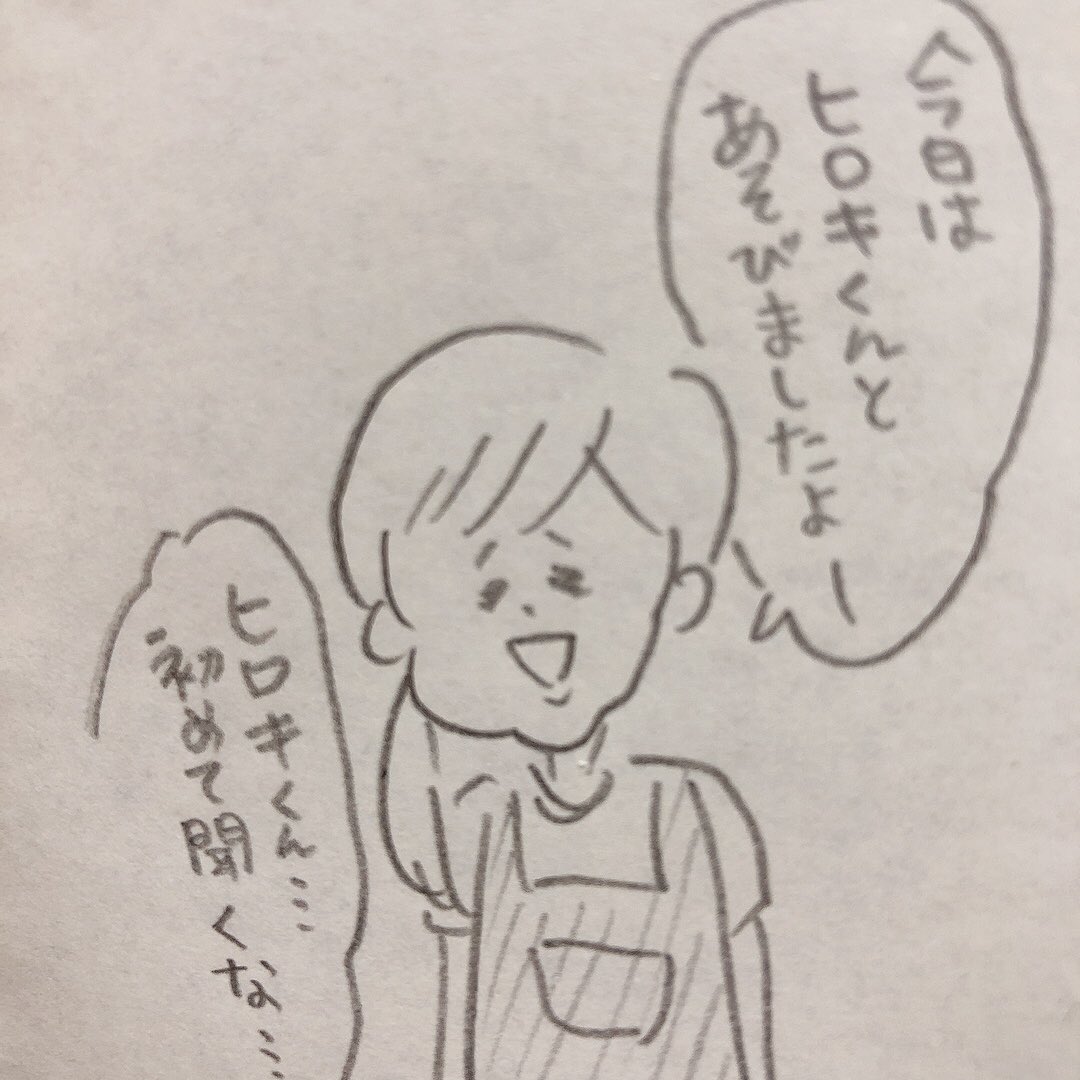 今日は
ヒロキくんと
あそびましたよー
ヒロキくん…
初めて聞くな…